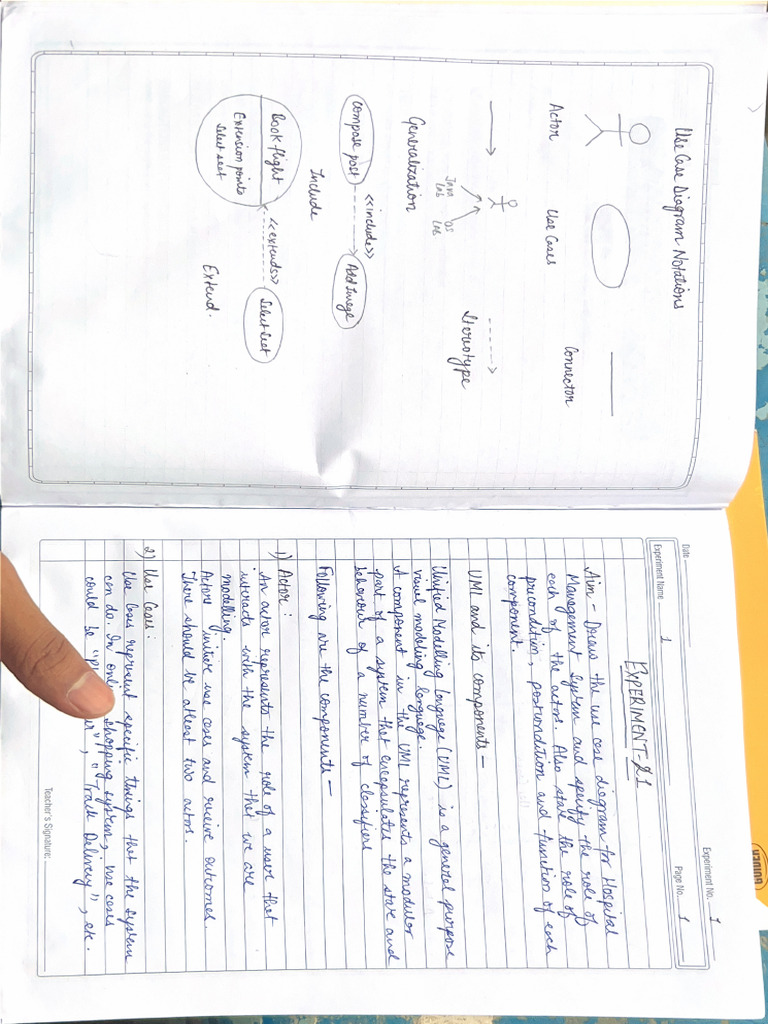 Use Case Diagram Notations
Actor
Use Cases
Connector
Java
Lab
OS
Lab
Generalization
Stereotype
compose post
<<include>>
Add Image
Include
Book flight
Extension points
Select seat
<<extends>>
Select Seat
Extend.
Date
Experiment No. 1
Experiment Name 1
Page No. 1
EXPERIMENT-1
Aim - Draw the use case diagram for Hospital
Management System and specify the role of
each of the actors. Also state the role of
precondition, postcondition and function of each
component.
UMI and its components -
Unified Modelling Language (UML) is a general purpose
visual modeling language.
A component in the UMl represents a modular
part of a system that encapsulates the state and
behaviour of a number of classifiers
Following are the components -
1) Actor :
An actor represents the role of a user that
interacts with the system that we are
modelling.
Actors initiate use cases and receive outcomes.
There should be atleast two actors.
2) Use Cases:
Use Cases represent specific things that the system
can do. In shopping system, use cases
could be "Track Delivery", etc.
Teacher's Signature: